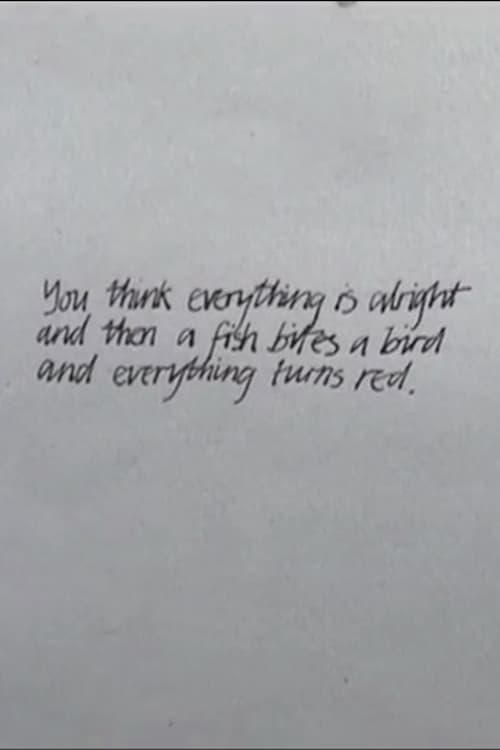 You think everything is alright
and then a fish bites a bird
and everything turns red.